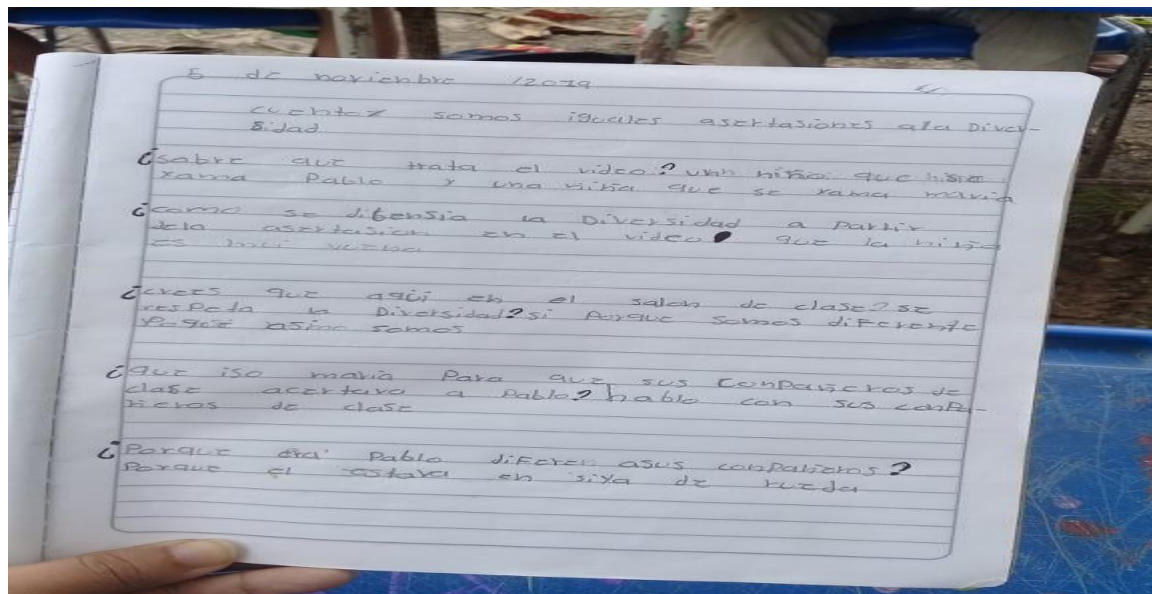 5 de novienbre /2019
cuentox somos iguales asertasiones ala Diver-
sidad
¿sobre que trata el video? unn niño que
xama Pablo y una niña que se xama maria
¿como se difensia la Diversidad a partir
dela asertasion en el video? que la niña
es mui
¿crees que aqui en el salon de clase? se
respeda la Diversidad? si porque somos diferente
Porque asino somos
¿que iso maria Para que sus conpañeros de
clase acertara a Pablo? hablo con sus conpa-
ñeros de clase
¿Porque era Pablo diferen asus conpañeros?
Porque el estava en siya de rueda